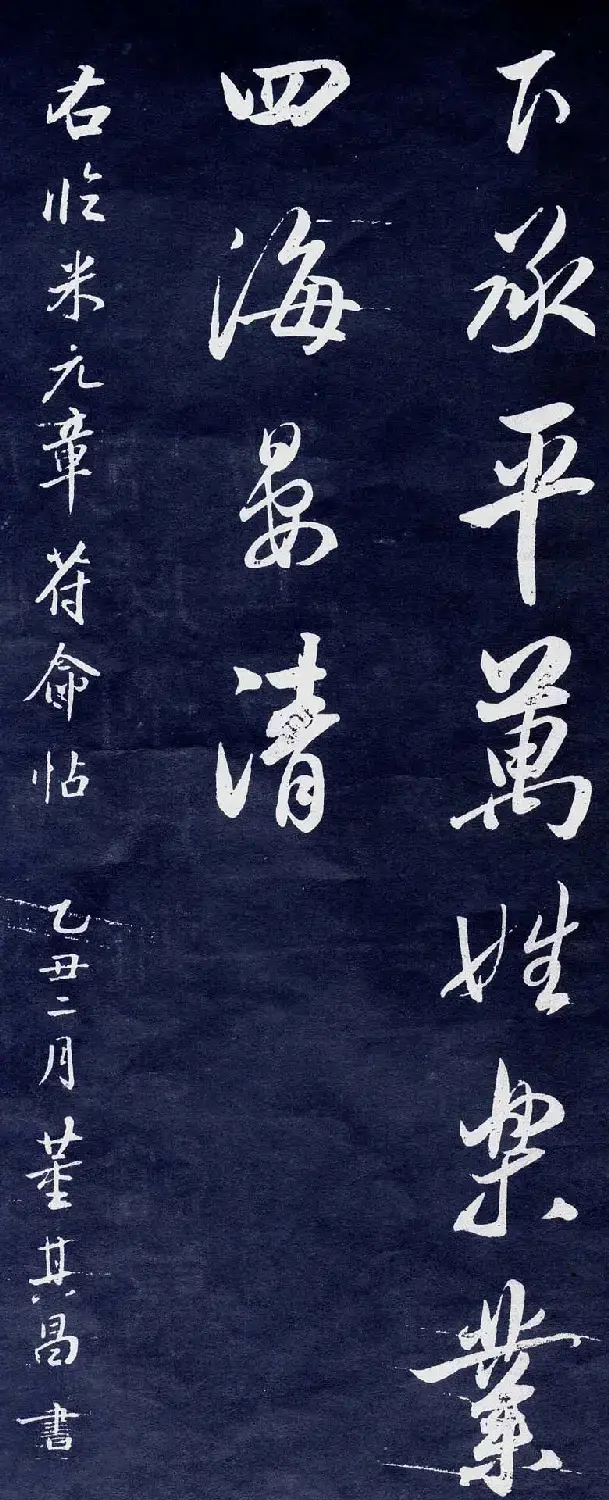 下承平萬姓樂業
四海晏清
右臨米元章苻命帖 乙丑二月董其昌書